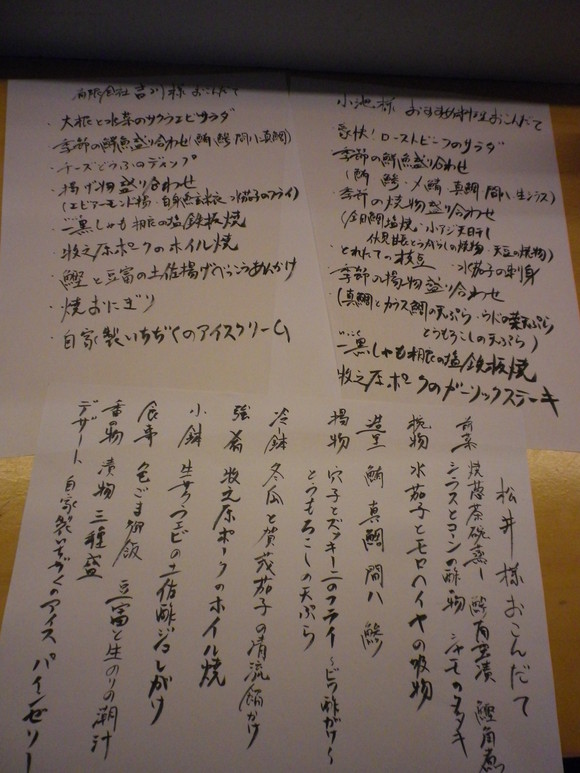 有限会社 吉川様 おこんだて
・大根と水菜のサクラエビサラダ
季節の鮮魚盛り合わせ(鯛 鰹 間八 真鯛)
・チーズどうふのディップ
・揚げ物盛り合わせ
(エビアーモンド揚・白身魚 水茄子のフライ)
・一黒しゃも 相衣の塩鉄板焼
・牧之原ポークのホイル焼
・鰹と豆富の土佐揚げべっこうあんかけ
・焼おにぎり
・自家製いちぢくのアイスクリーム
小池様 おすすめ料理おこんだて
・豪快!ローストビーフのサラダ
季節の鮮魚盛り合わせ
(鯛 鰺 〆鯖 真鯛 間八 生シラス)
・季節の焼物盛り合わせ
(金目鯛塩焼・小アジ天日干し
伏見甘長とうがらしの焼物・天豆の焼物)
・とれたての枝豆 ・水茄子の刺身
季節の揚物盛り合わせ
(真鯛とカラス鯛の天ぷら・ウドの葉天ぷら
とうもろこしの天ぷら)
いっこく
一黒しゃも 相衣の塩鉄板焼
牧之原ポークのガーリックステーキ
松井様おこんだて
前菜 焼葱茶碗蒸し 鰹角煮
シラスとコーンの酢物 シャモのタタキ
椀物 水茄子とモロヘイヤの吸物
造里 鯛 真鯛 間八 鰺
揚物 穴子とズッキーニのフライ〜ビワ酢がけ〜
とうもろこしの天ぷら
冷鉢 冬瓜と賀茂茄子の清流餡かけ
強肴 牧之原ポークのホイル焼
小鉢 生サクラエビの土佐酢ジュレがけ
食事 色ごま御飯 豆富と生のりの潮汁
香の物 漬物三種盛
デザート 自家製いちぢくのアイス パインゼリー